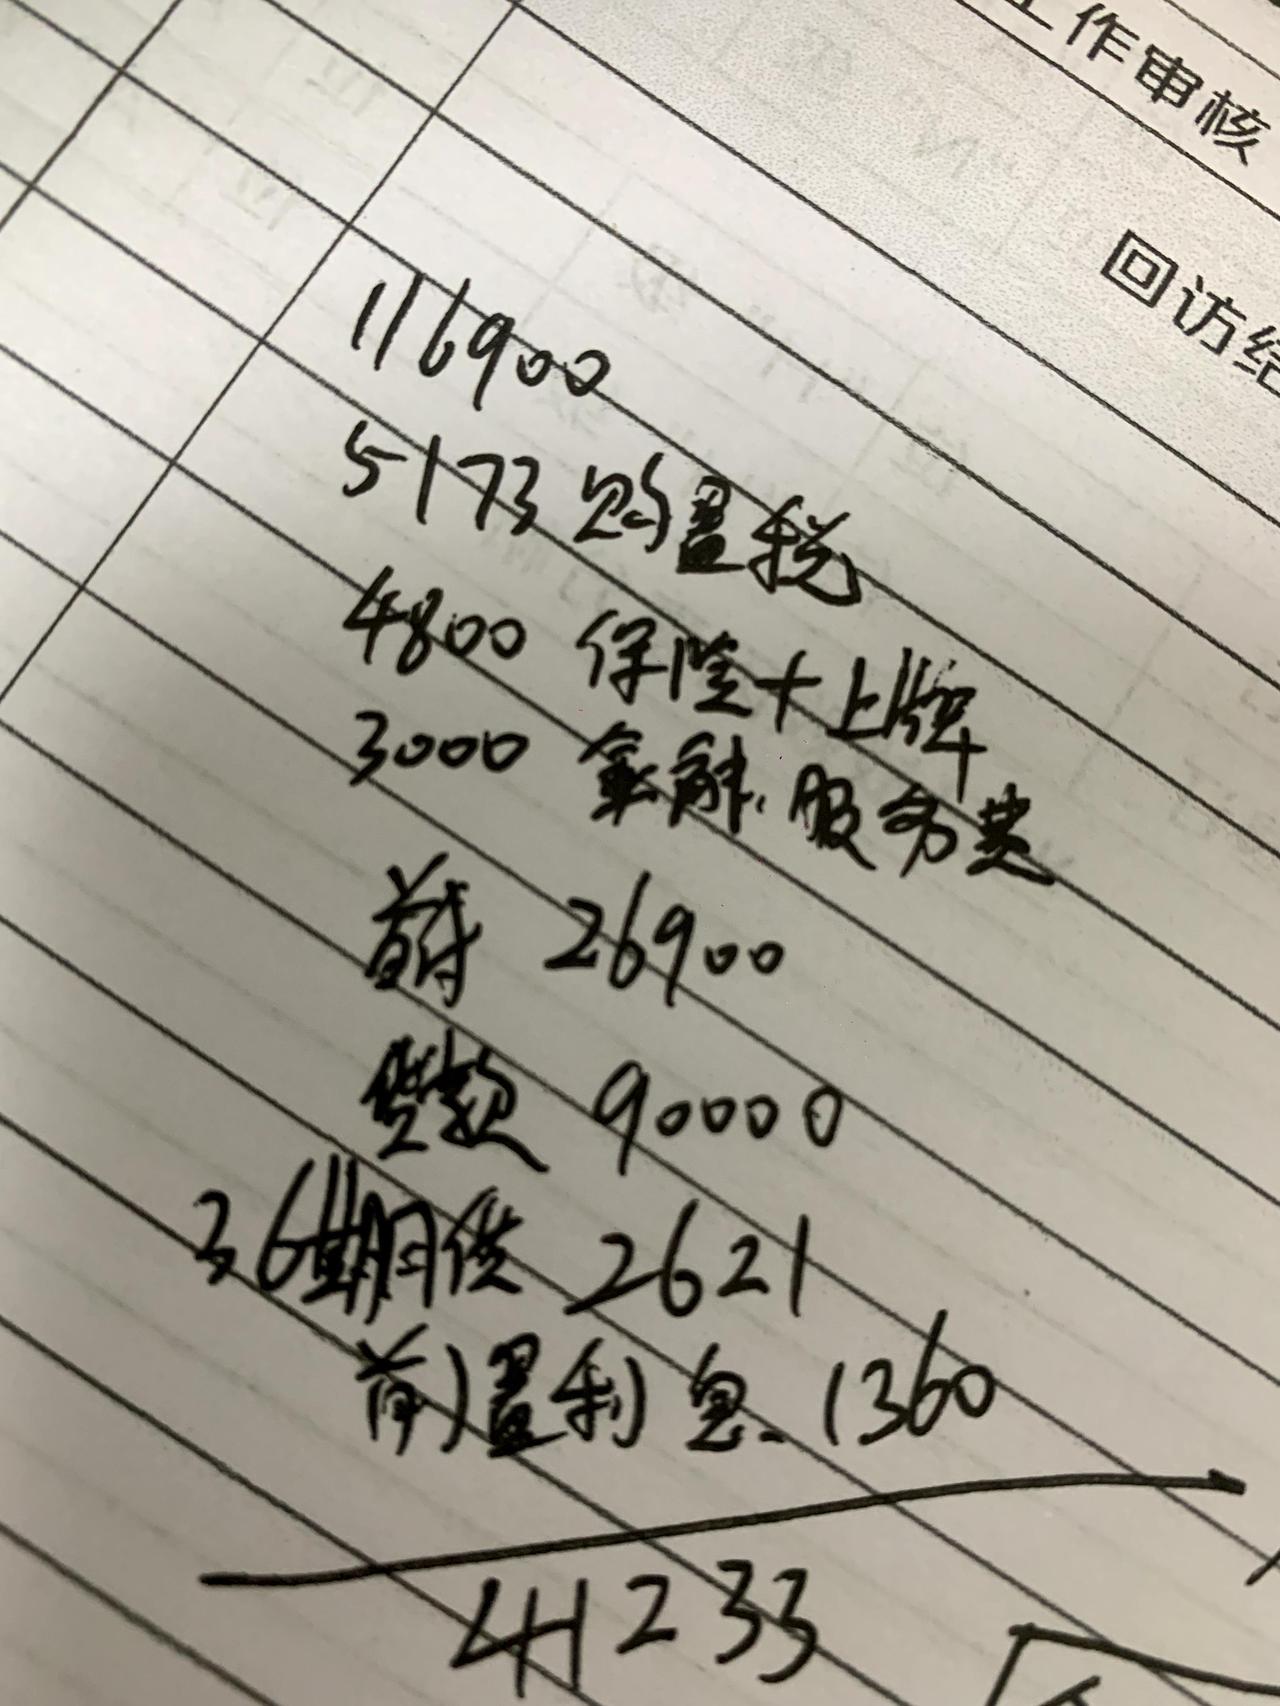 工作审核
回访结
116900
5173 购置税
4800 保险+上牌
3000 金融服务费
首付 26900
贷款 90000
36期月供 2621
前置利息 1360
41233